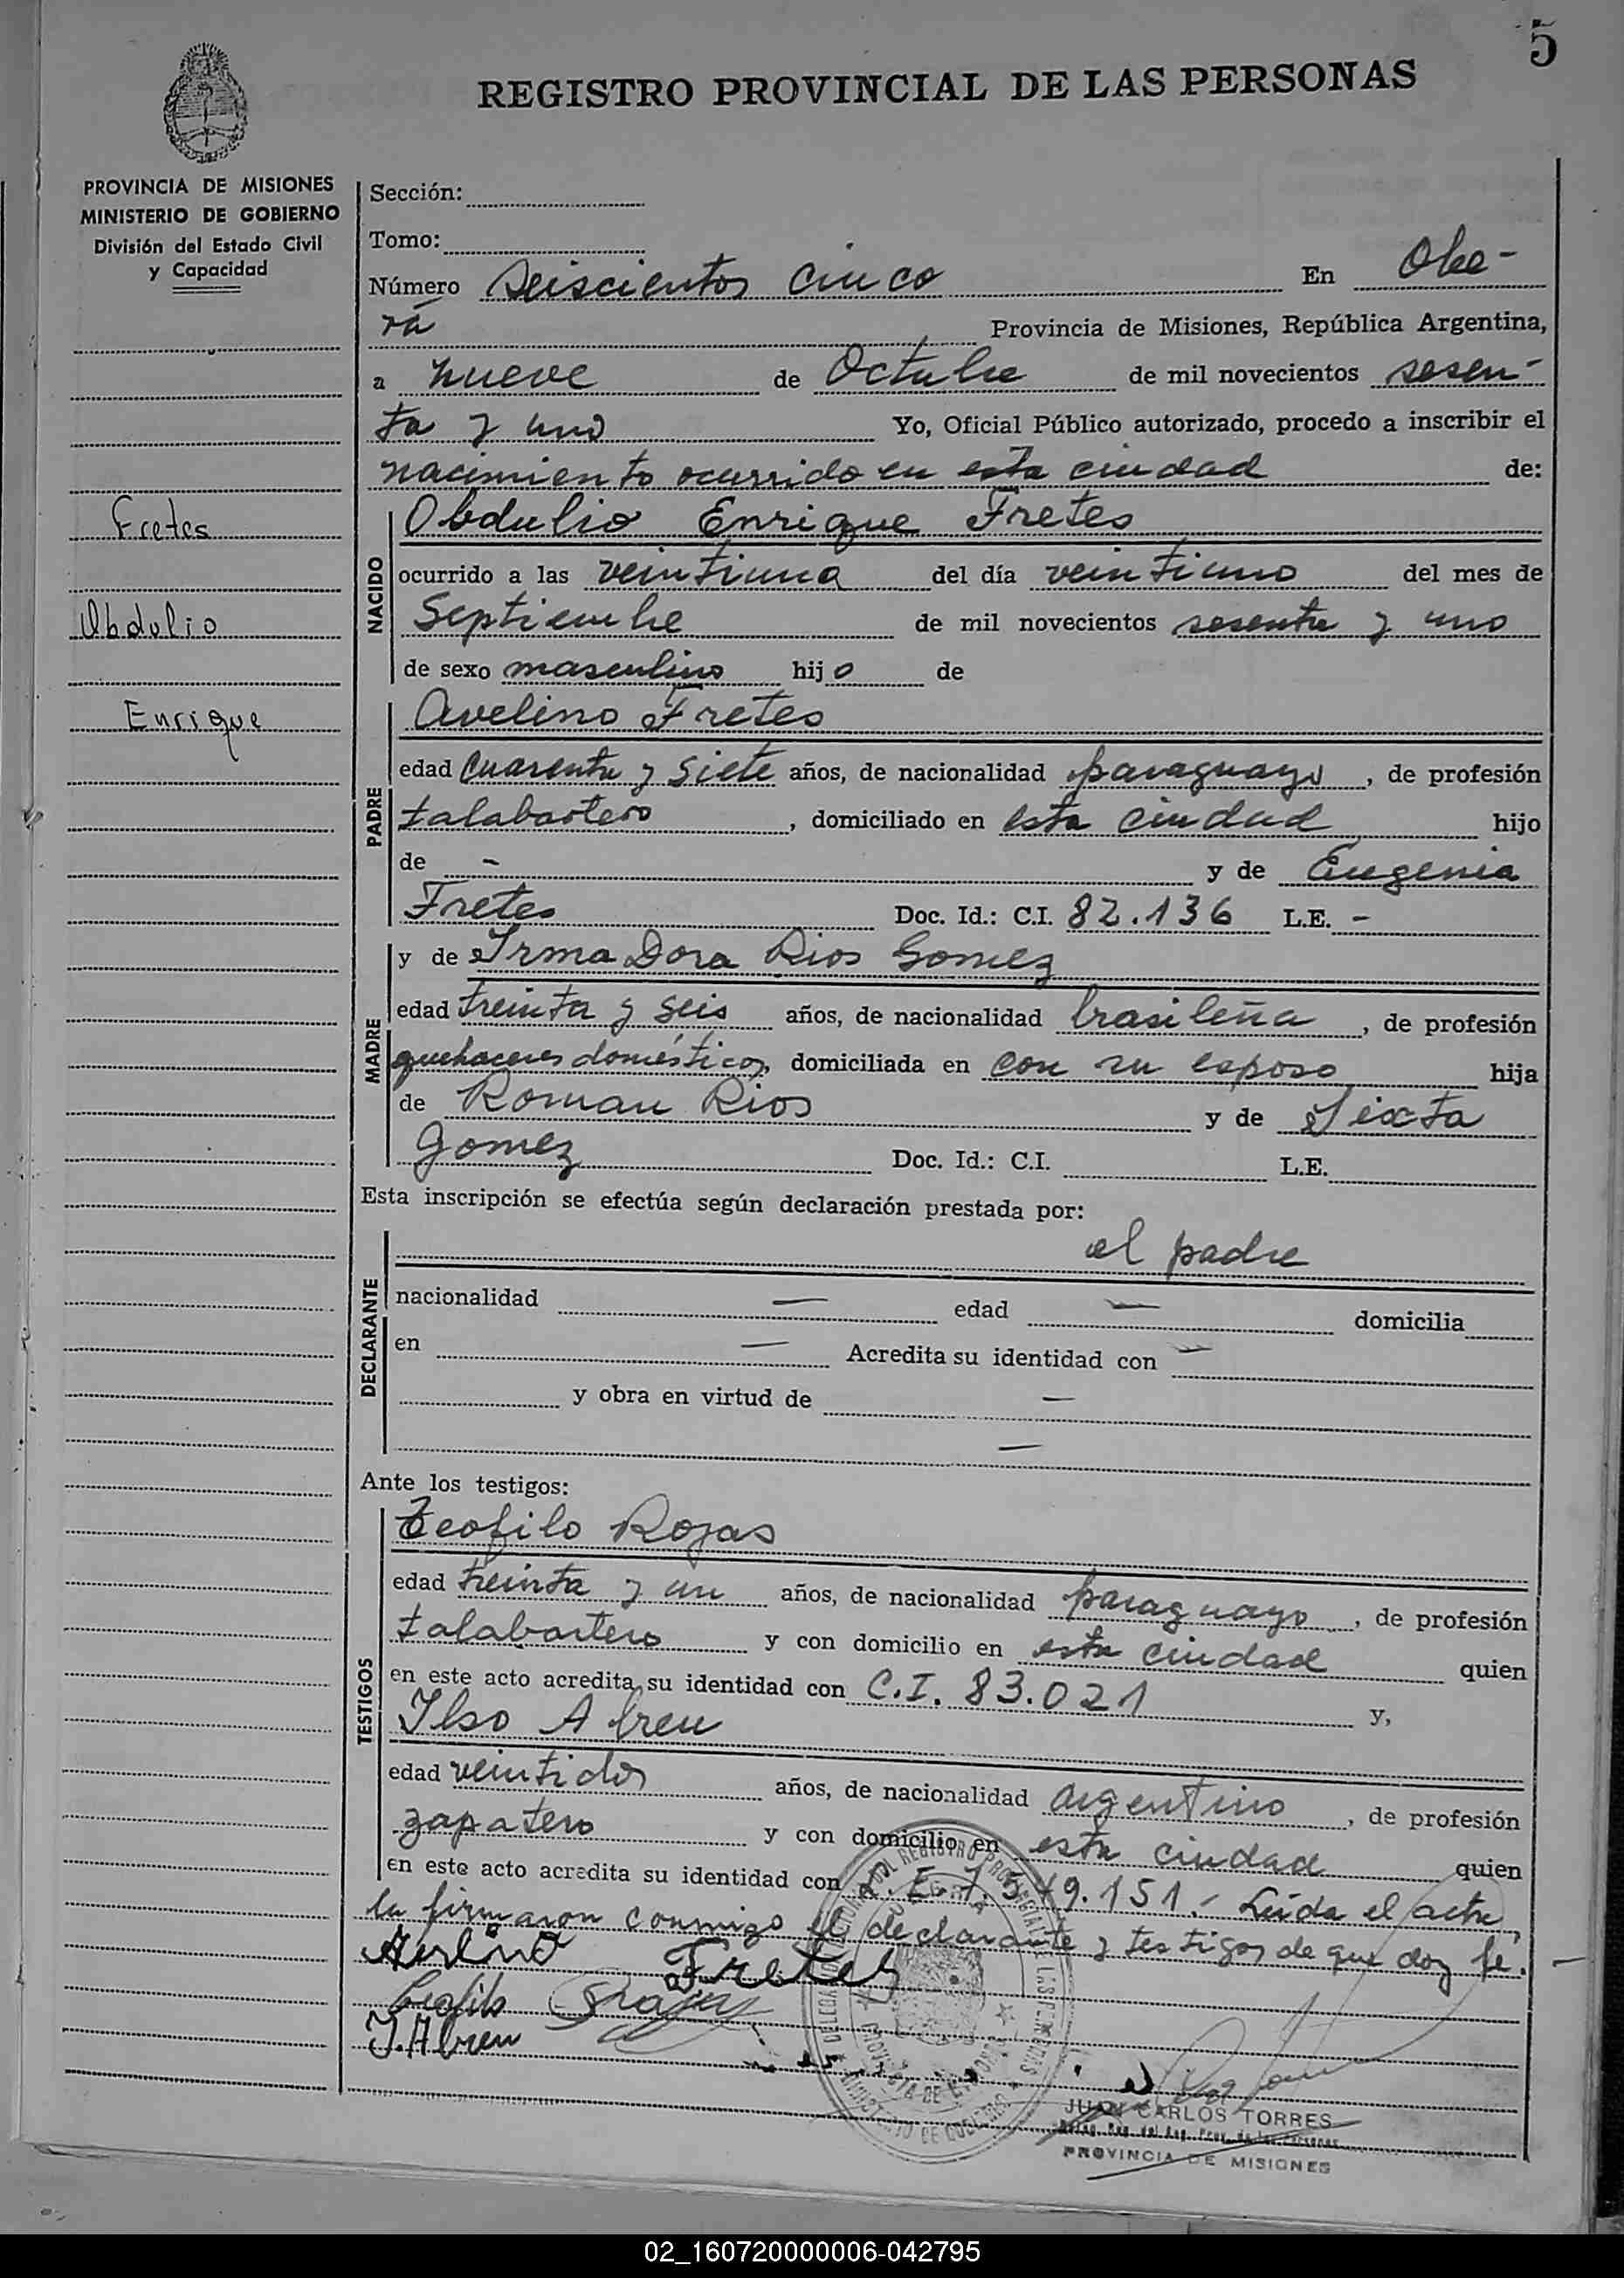 5
REGISTRO PROVINCIAL DE LAS PERSONAS
PROVINCIA DE MISIONES
MINISTERIO DE GOBIERNO
División del Estado Civil
y Capacidad
Fretes
Obdulio
Enrique
Sección:
Tomo:
Número seiscientos cinco En Obe-
rá Provincia de Misiones, República Argentina,
a nueve de Octubre de mil novecientos sesen-
ta y uno Yo, Oficial Público autorizado, procedo a inscribir el
nacimiento ocurrido en esta ciudad de:
NACIDO
Obdulio Enrique Fretes
ocurrido a las veintiuna del día veintiuno del mes de
Septiembre de mil novecientos sesenta y uno
de sexo masculino hijo de
PADRE
Avelino Fretes
edad cuarenta y siete años, de nacionalidad paraguayo, de profesión
talabartero, domiciliado en esta ciudad hijo
de - y de Eugenia
Fretes Doc. Id.: C.I. 82.136 L.E. -
MADRE
y de Irma Dora Rios Gomez
edad treinta y seis años, de nacionalidad brasileña, de profesión
quehaceres domésticos, domiciliada en con su esposo hija
de Roman Rios y de Sixta
Gomez Doc. Id.: C.I. L.E.
Esta inscripción se efectúa según declaración prestada por:
DECLARANTE
el padre
nacionalidad — edad — domicilia
en — Acredita su identidad con —
y obra en virtud de —
—
Ante los testigos:
TESTIGOS
Teofilo Rojas
edad treinta y un años, de nacionalidad paraguayo, de profesión
talabartero y con domicilio en esta ciudad quien
en este acto acredita su identidad con C.I. 83.021 y,
Ilso Abreu
edad veintidos años, de nacionalidad argentino, de profesión
zapatero y con domicilio en esta ciudad quien
en este acto acredita su identidad con L.E. 7.549.151.- Leída el acta,
la firmaron conmigo el declarante y testigos de que doy fé. —
Avelino Fretes
Teofilo Rojas
I. Abreu
JUAN CARLOS TORRES
PROVINCIA DE MISIONES
02_160720000006-042795